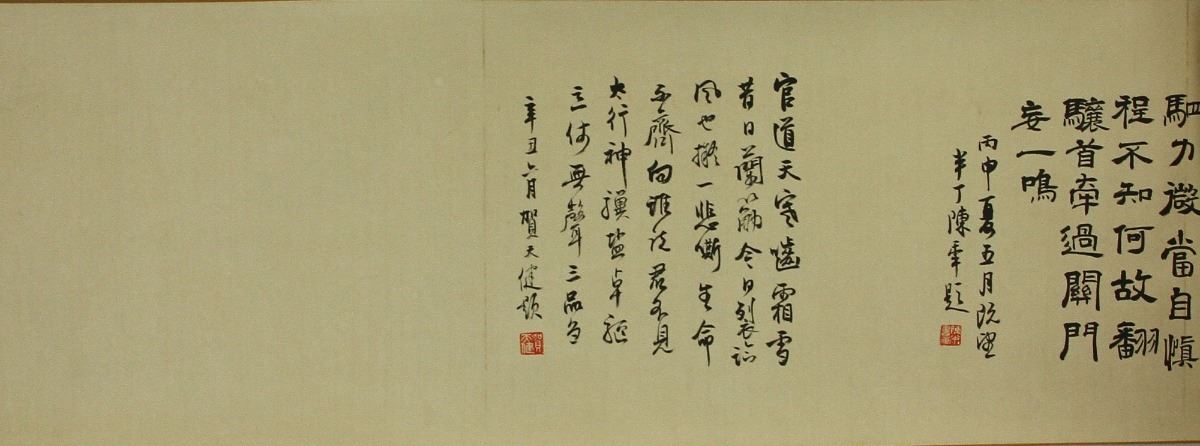 力微當自慎
程不知何故翻
驤首牽過關門
妄一鳴
丙申夏五月既望
半丁陳年題
官道天寒嚙霜雪
昔日蘭筋今日裂臨
風也擬一悲嘶生命
不齊向誰說君不見
太行神驥鹽車驅
立仗無聲三品芻
辛丑六月賀天健題